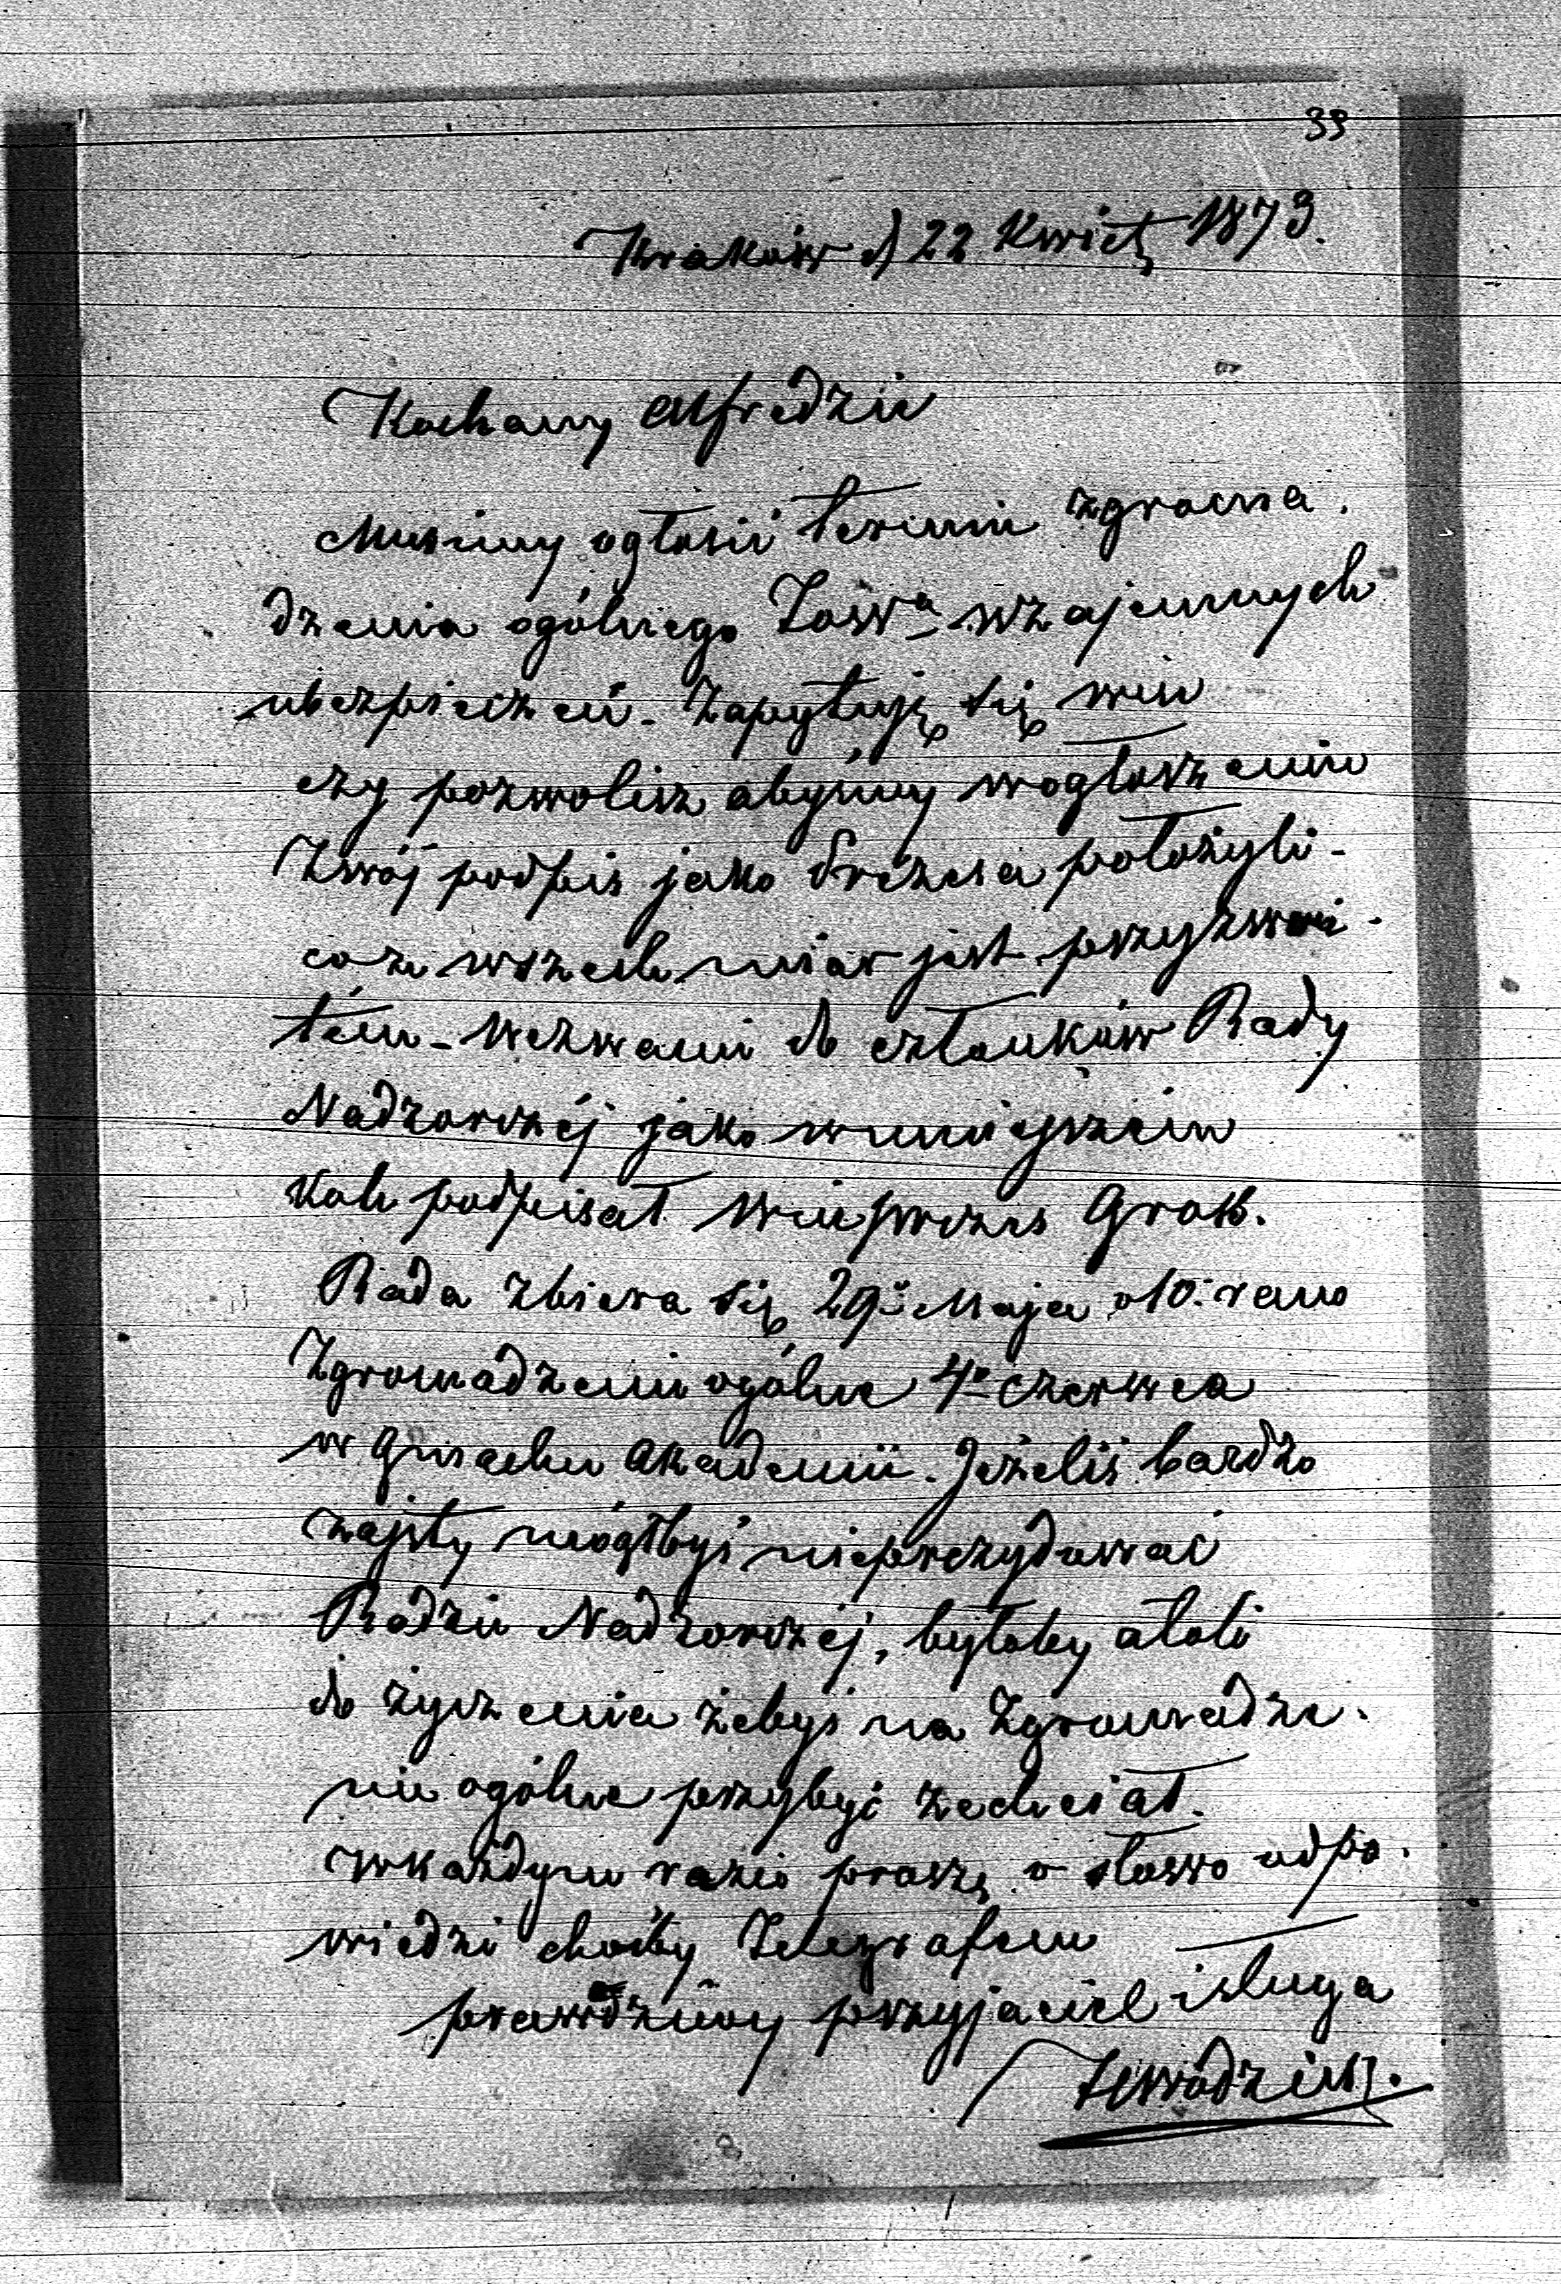 39
Kraków d 22 Kwiet 1873.
Kochany Alfredzie
Musimy ogłosić termin zgroma.
dzenia ogólnego Towa wzajemnych
ubezpieczeń - Zapytuję się więc
czy pozwolisz abyśmy w ogłoszeniu
Twój podpis jako Prezesa położyli -
co ze wszech miar jest przyzwoi -
tém - Wezwanie do członków Rady
Nadzorczéj jako w mniejszém
kole podpisał Wiceprezes Grok.
Rada zbiera się 29o Maja o 10. rano
Zgromadzenie ogólne 4o Czerwca
w Gmachu Akademii. Jeżeliś bardzo
zajęty mógłbyś nieprezydować
Radzie Nadzorczej, byłoby atoli
do życzenia żebyś na Zgromadze.
nie ogólne przybyć zechciał.
W każdym razie proszę o słowo odpo.
wiedzi choćby Telegrafem
prawdziwy przyjaciel i sługa